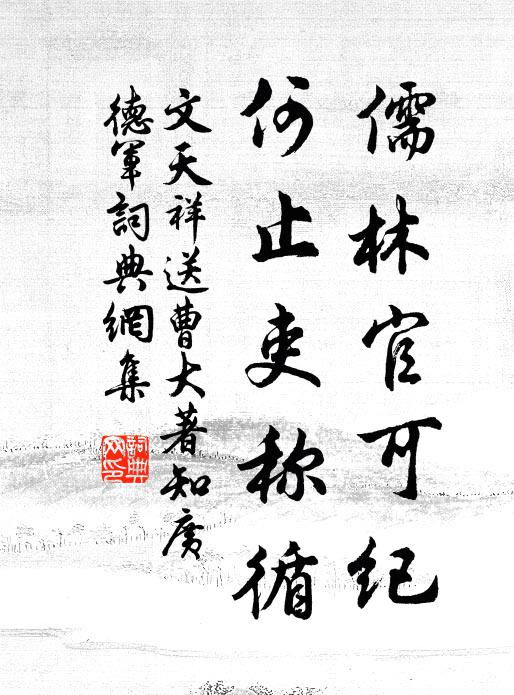 儒林官可纪
何止吏称循
文天祥送曹大著知广
德军词典網集
詞典
网印